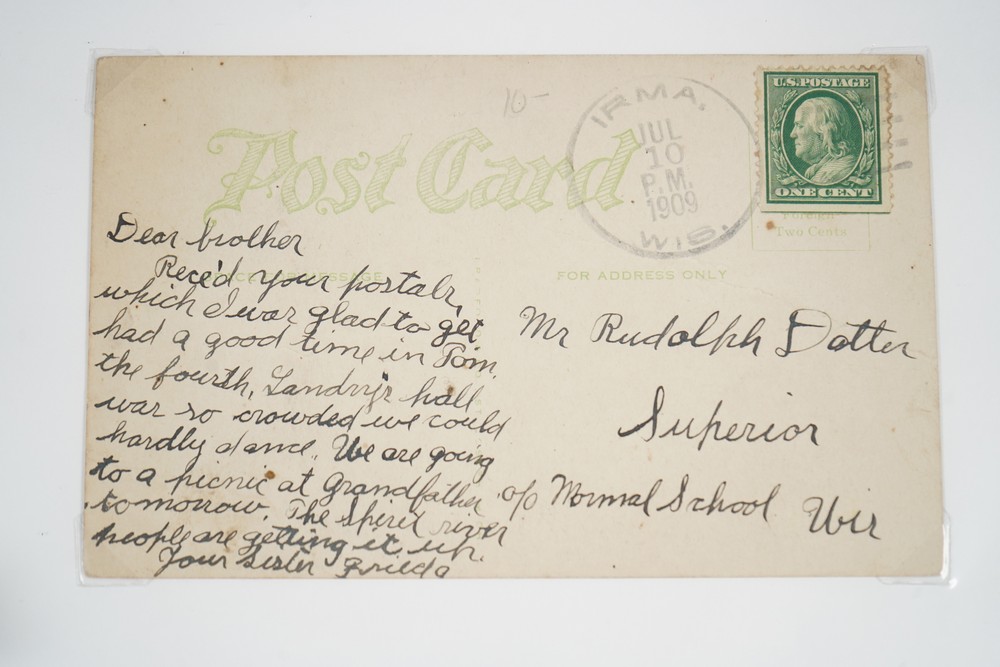 10-
Post Card
IRMA,
JUL
10
P.M.
1909
WIS.
U.S. POSTAGE
ONE CENT
Foreign
Two Cents
FOR MESSAGE
FOR ADDRESS ONLY
Dear brother
Rece'd your postals,
which I was glad to get
had a good time in Tom.
the fourth, Landry's hall
was so crowded we could
hardly dance. We are going
to a picnic at Grandfather
tomorrow. The Spirit river
people are getting it up.
Your Sister Frieda
Mr Rudolph Datter
Superior
c/o Normal School Wis